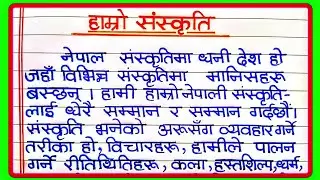 हाम्रो संस्कृति
नेपाल संस्कृतिमा धनी देश हो
जहाँ विभिन्न संस्कृतिमा मानिसहरू
बस्छन् । हामी हाम्रो नेपाली संस्कृति-
लाई धेरै सम्मान र सम्मान गर्दछौं।
संस्कृति भनेको अरूसँग व्यवहार गर्ने
तरीका हो, विचारहरू, हामीले पालन
गर्ने रीतिथितिहरू, कला, हस्तशिल्प, धर्म,